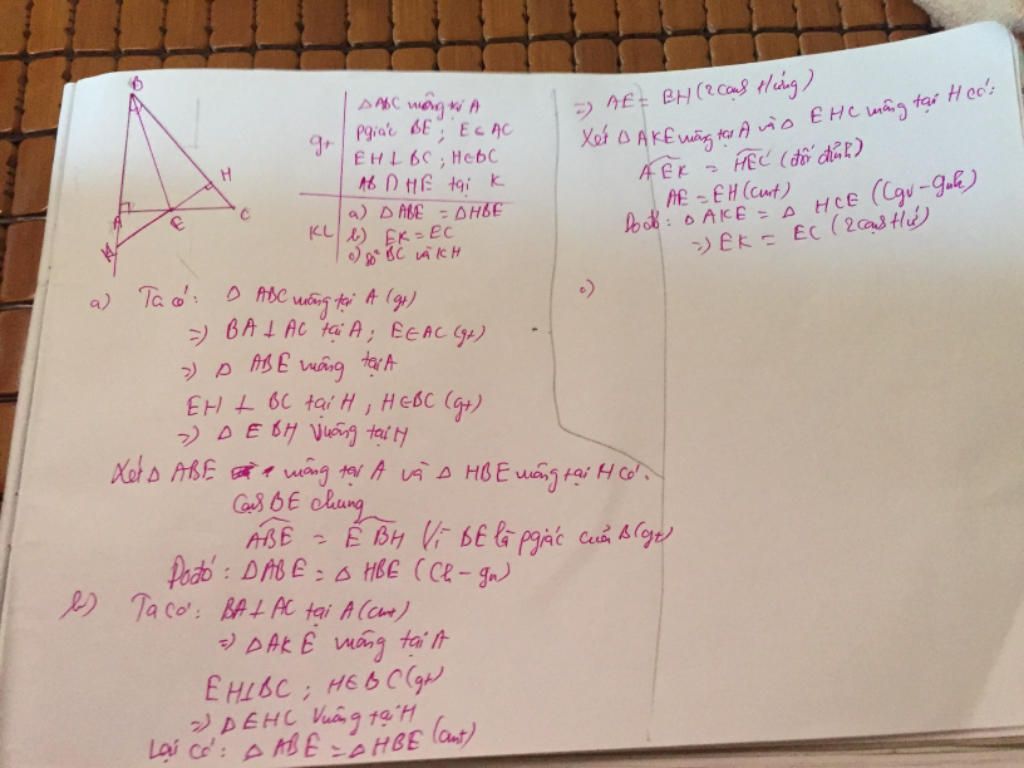 B
H
A
E
C
K
gt
△ABC vuông tại A
pgiác BE ; E∈AC
EH⊥BC ; H∈BC
AB ∩ HE tại K
KL
a) △ABE = △HBE
b) EK = EC
c) so² BC và KH
a) Ta có: △ ABC vuông tại A (gt)
=) BA ⊥ AC tại A ; E∈AC (gt)
=) △ ABE vuông tại A
EH ⊥ BC tại H , H∈BC (gt)
=) △ EBH vuông tại H
Xét △ ABE vuông tại A và △ HBE vuông tại H có.
Cạnh BE chung
ABE = EBH Vì BE là pgiác của B (gt)
Do đó : △ABE = △ HBE (Ch - gn)
b) Ta có: BA⊥AC tại A (cmt)
=) △AKE vuông tại A
EH⊥BC ; H∈BC (gt)
=) △EHC Vuông tại H
Lại có: △ ABE = △HBE (cmt)
=) AE = BH (2 cạnh tứng)
Xét △ AKE vuông tại A và △ EHC vuông tại H có:
AEK = HEC (đối đỉnh)
AE = EH (cmt)
Do đó: △ AKE = △ HCE (Cgv - gnk)
=) EK = EC (2 cạnh tứ)
c)